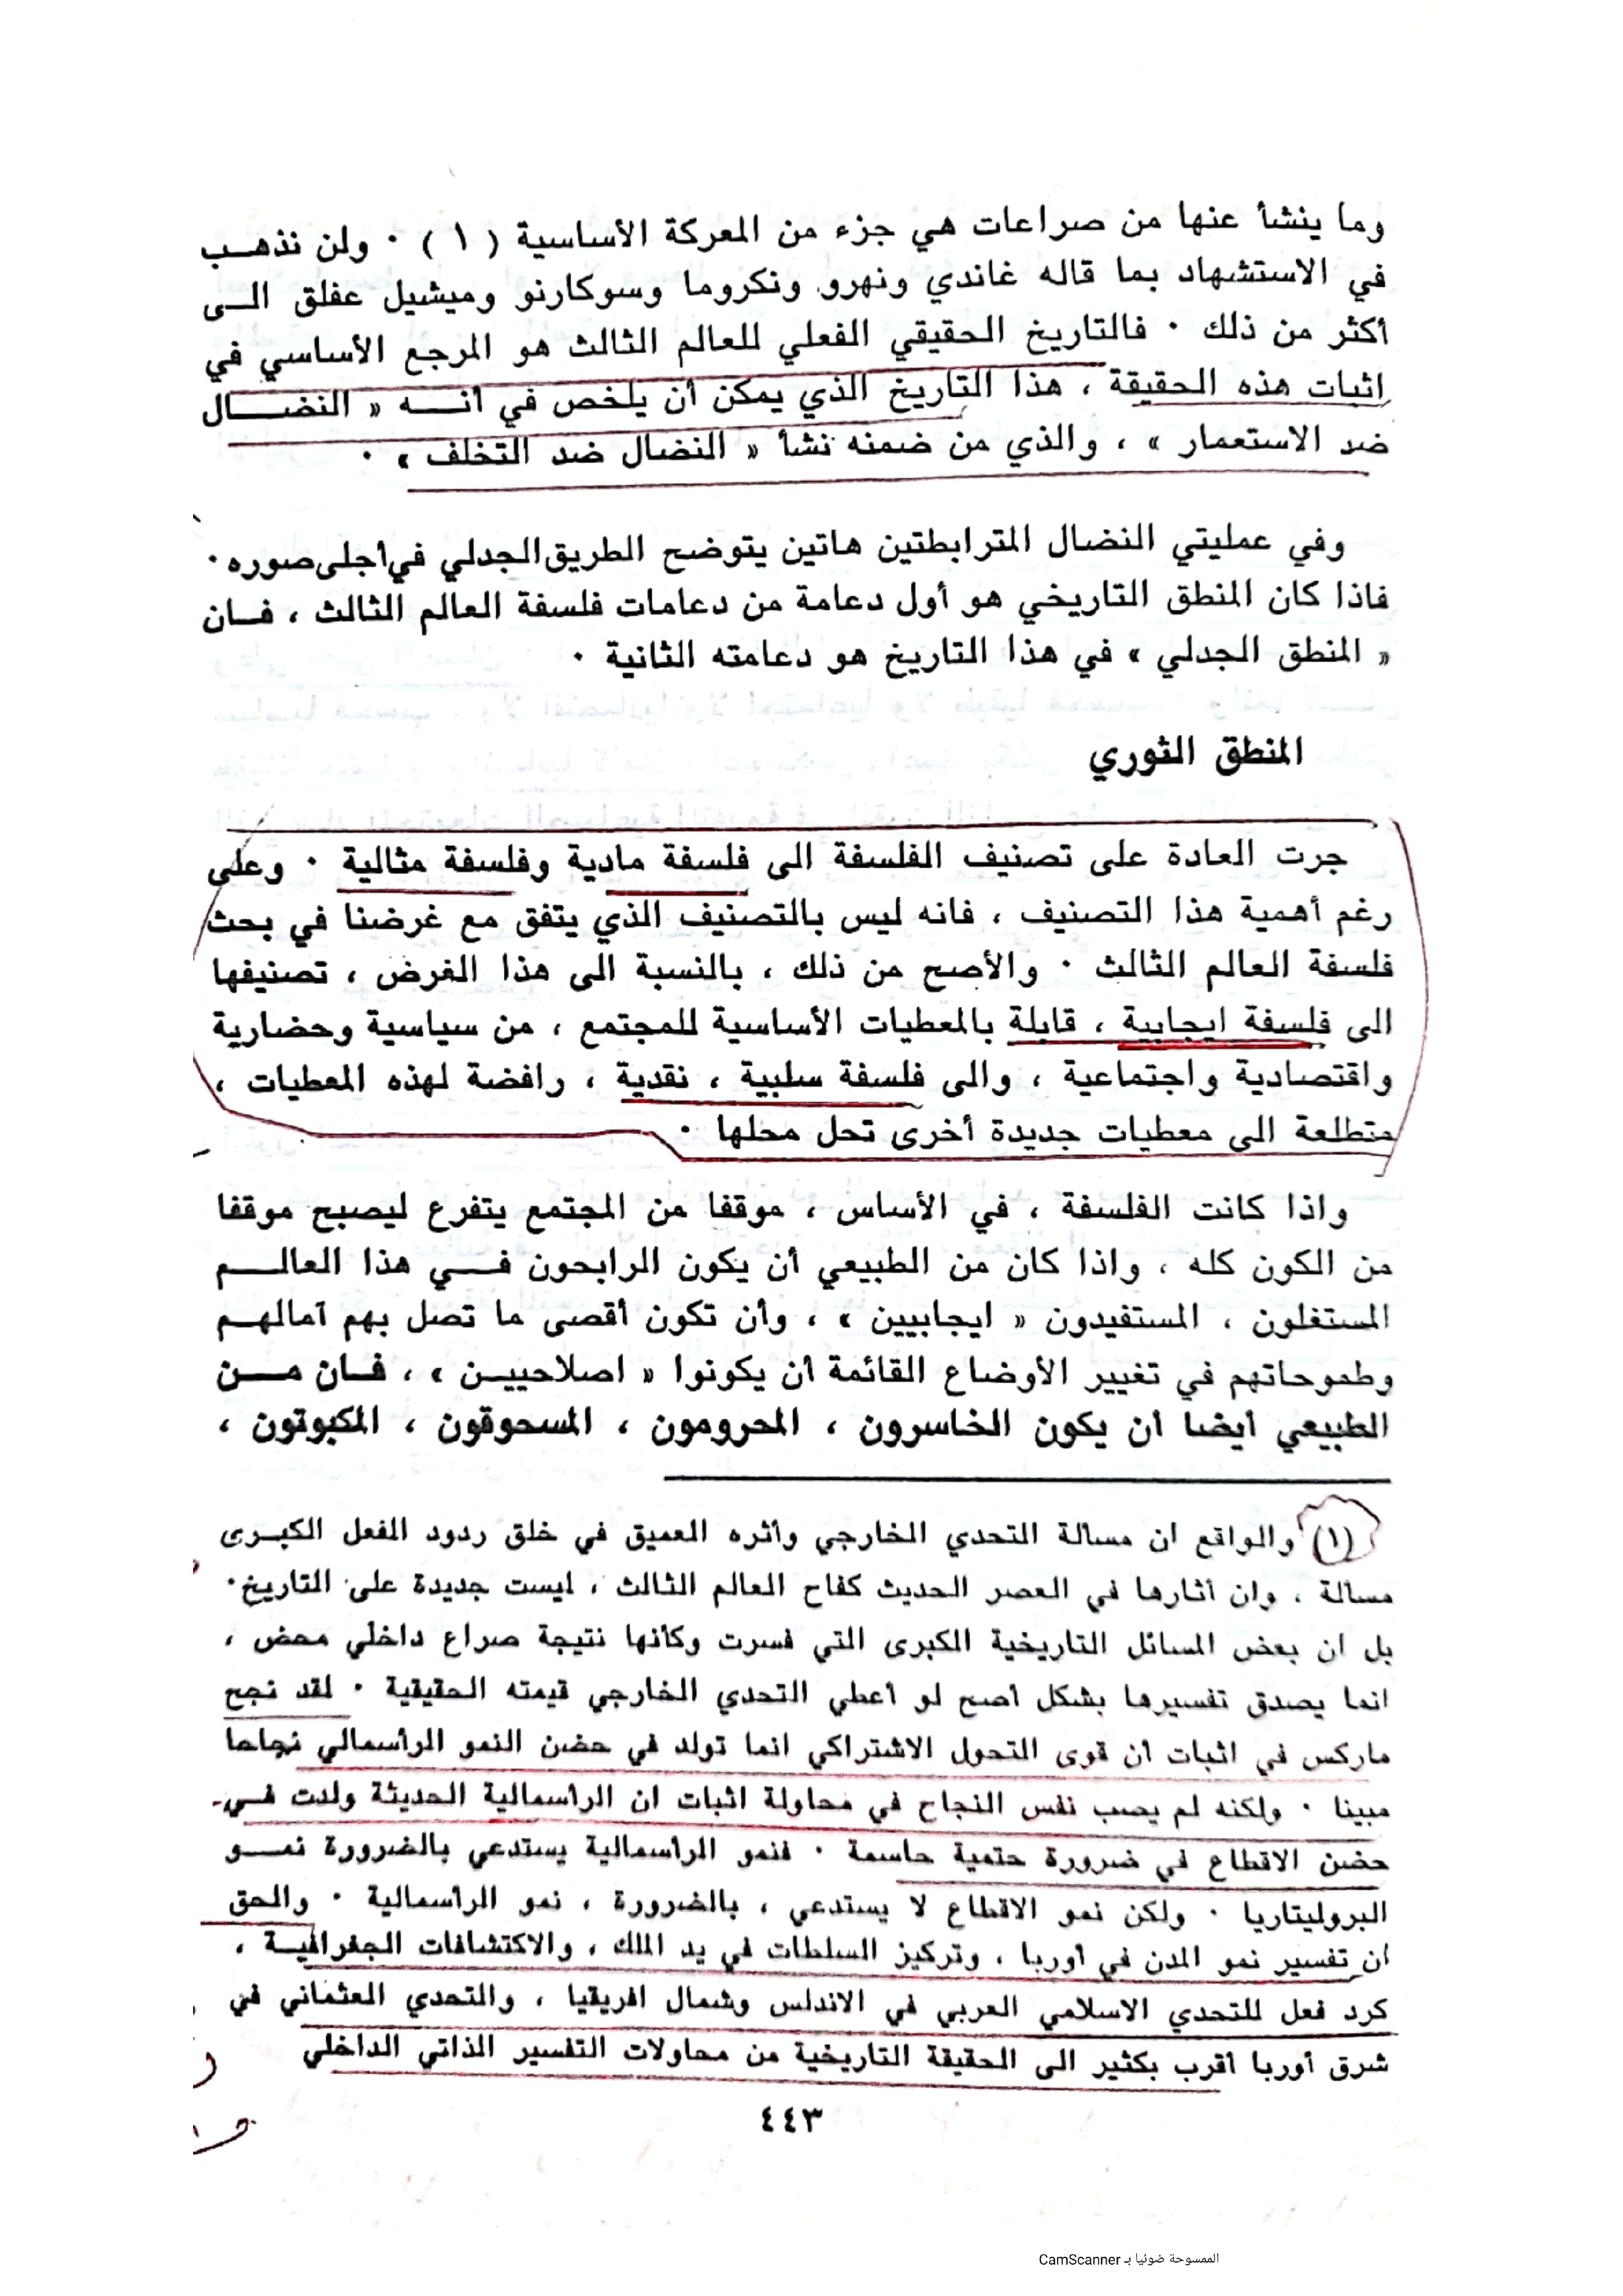 وما ينشأ عنها من صراعات هي جزء من المعركة الأساسية ( ١ ) ٠ ولن نذهب
في الاستشهاد بما قاله غاندي ونهرو ونكروما وسوكارنو وميشيل عفلق الى
أكثر من ذلك ٠ فالتاريخ الحقيقي الفعلي للعالم الثالث هو المرجع الأساسي في
اثبات هذه الحقيقة ، هذا التاريخ الذي يمكن أن يلخص في أنه « النضال
ضد الاستعمار » ، والذي من ضمنه نشأ « النضال ضد التخلف » ٠
وفي عمليتي النضال المترابطتين هاتين يتوضح الطريق الجدلي في أجلى صوره ٠
فاذا كان المنطق التاريخي هو أول دعامة من دعامات فلسفة العالم الثالث ، فان
« المنطق الجدلي » في هذا التاريخ هو دعامته الثانية ٠
المنطق الثوري
جرت العادة على تصنيف الفلسفة الى فلسفة مادية وفلسفة مثالية ٠ وعلى
رغم أهمية هذا التصنيف ، فانه ليس بالتصنيف الذي يتفق مع غرضنا في بحث
فلسفة العالم الثالث ٠ والأصح من ذلك ، بالنسبة الى هذا الغرض ، تصنيفها
الى فلسفة ايجابية ، قابلة بالمعطيات الأساسية للمجتمع ، من سياسية وحضارية
واقتصادية واجتماعية ، والى فلسفة سلبية ، نقدية ، رافضة لهذه المعطيات ،
متطلعة الى معطيات جديدة أخرى تحل محلها ٠
واذا كانت الفلسفة ، في الأساس ، موقفا من المجتمع يتفرع ليصبح موقفا
من الكون كله ، واذا كان من الطبيعي أن يكون الرابحون في هذا العالم
المستغلون ، المستفيدون « ايجابيين » ، وأن تكون أقصى ما تصل بهم آمالهم
وطموحاتهم في تغيير الأوضاع القائمة أن يكونوا « اصلاحيين » ، فان من
الطبيعي أيضا أن يكون الخاسرون ، المحرومون ، المسحوقون ، المكبوتون ،
(١) والواقع ان مسالة التحدي الخارجي وأثره العميق في خلق ردود الفعل الكبرى
مسالة ، وان أثارها في العصر الحديث كفاح العالم الثالث ، ليست جديدة على التاريخ ٠
بل ان بعض المسائل التاريخية الكبرى التي فسرت وكأنها نتيجة صراع داخلي محض ،
انما يصدق تفسيرها بشكل أصح لو أعطي التحدي الخارجي قيمته الحقيقية ٠ لقد نجح
ماركس في اثبات أن قوى التحول الاشتراكي انما تولد في حضن النمو الرأسمالي نجاحا
مبينا ٠ ولكنه لم يصب نفس النجاح في محاولة اثبات ان الرأسمالية الحديثة ولدت في
حضن الاقطاع في ضرورة حتمية حاسمة ٠ فنمو الرأسمالية يستدعي بالضرورة نمو
البروليتاريا ٠ ولكن نمو الاقطاع لا يستدعي ، بالضرورة ، نمو الرأسمالية ٠ والحق
ان تفسير نمو المدن في أوربا ، وتركيز السلطات في يد الملك ، والاكتشافات الجغرافية ،
كرد فعل للتحدي الاسلامي العربي في الاندلس وشمال افريقيا ، والتحدي العثماني في
شرق أوربا أقرب بكثير الى الحقيقة التاريخية من محاولات التفسير الذاتي الداخلي
٤٤٣
الممسوحة ضوئيا بـ CamScanner